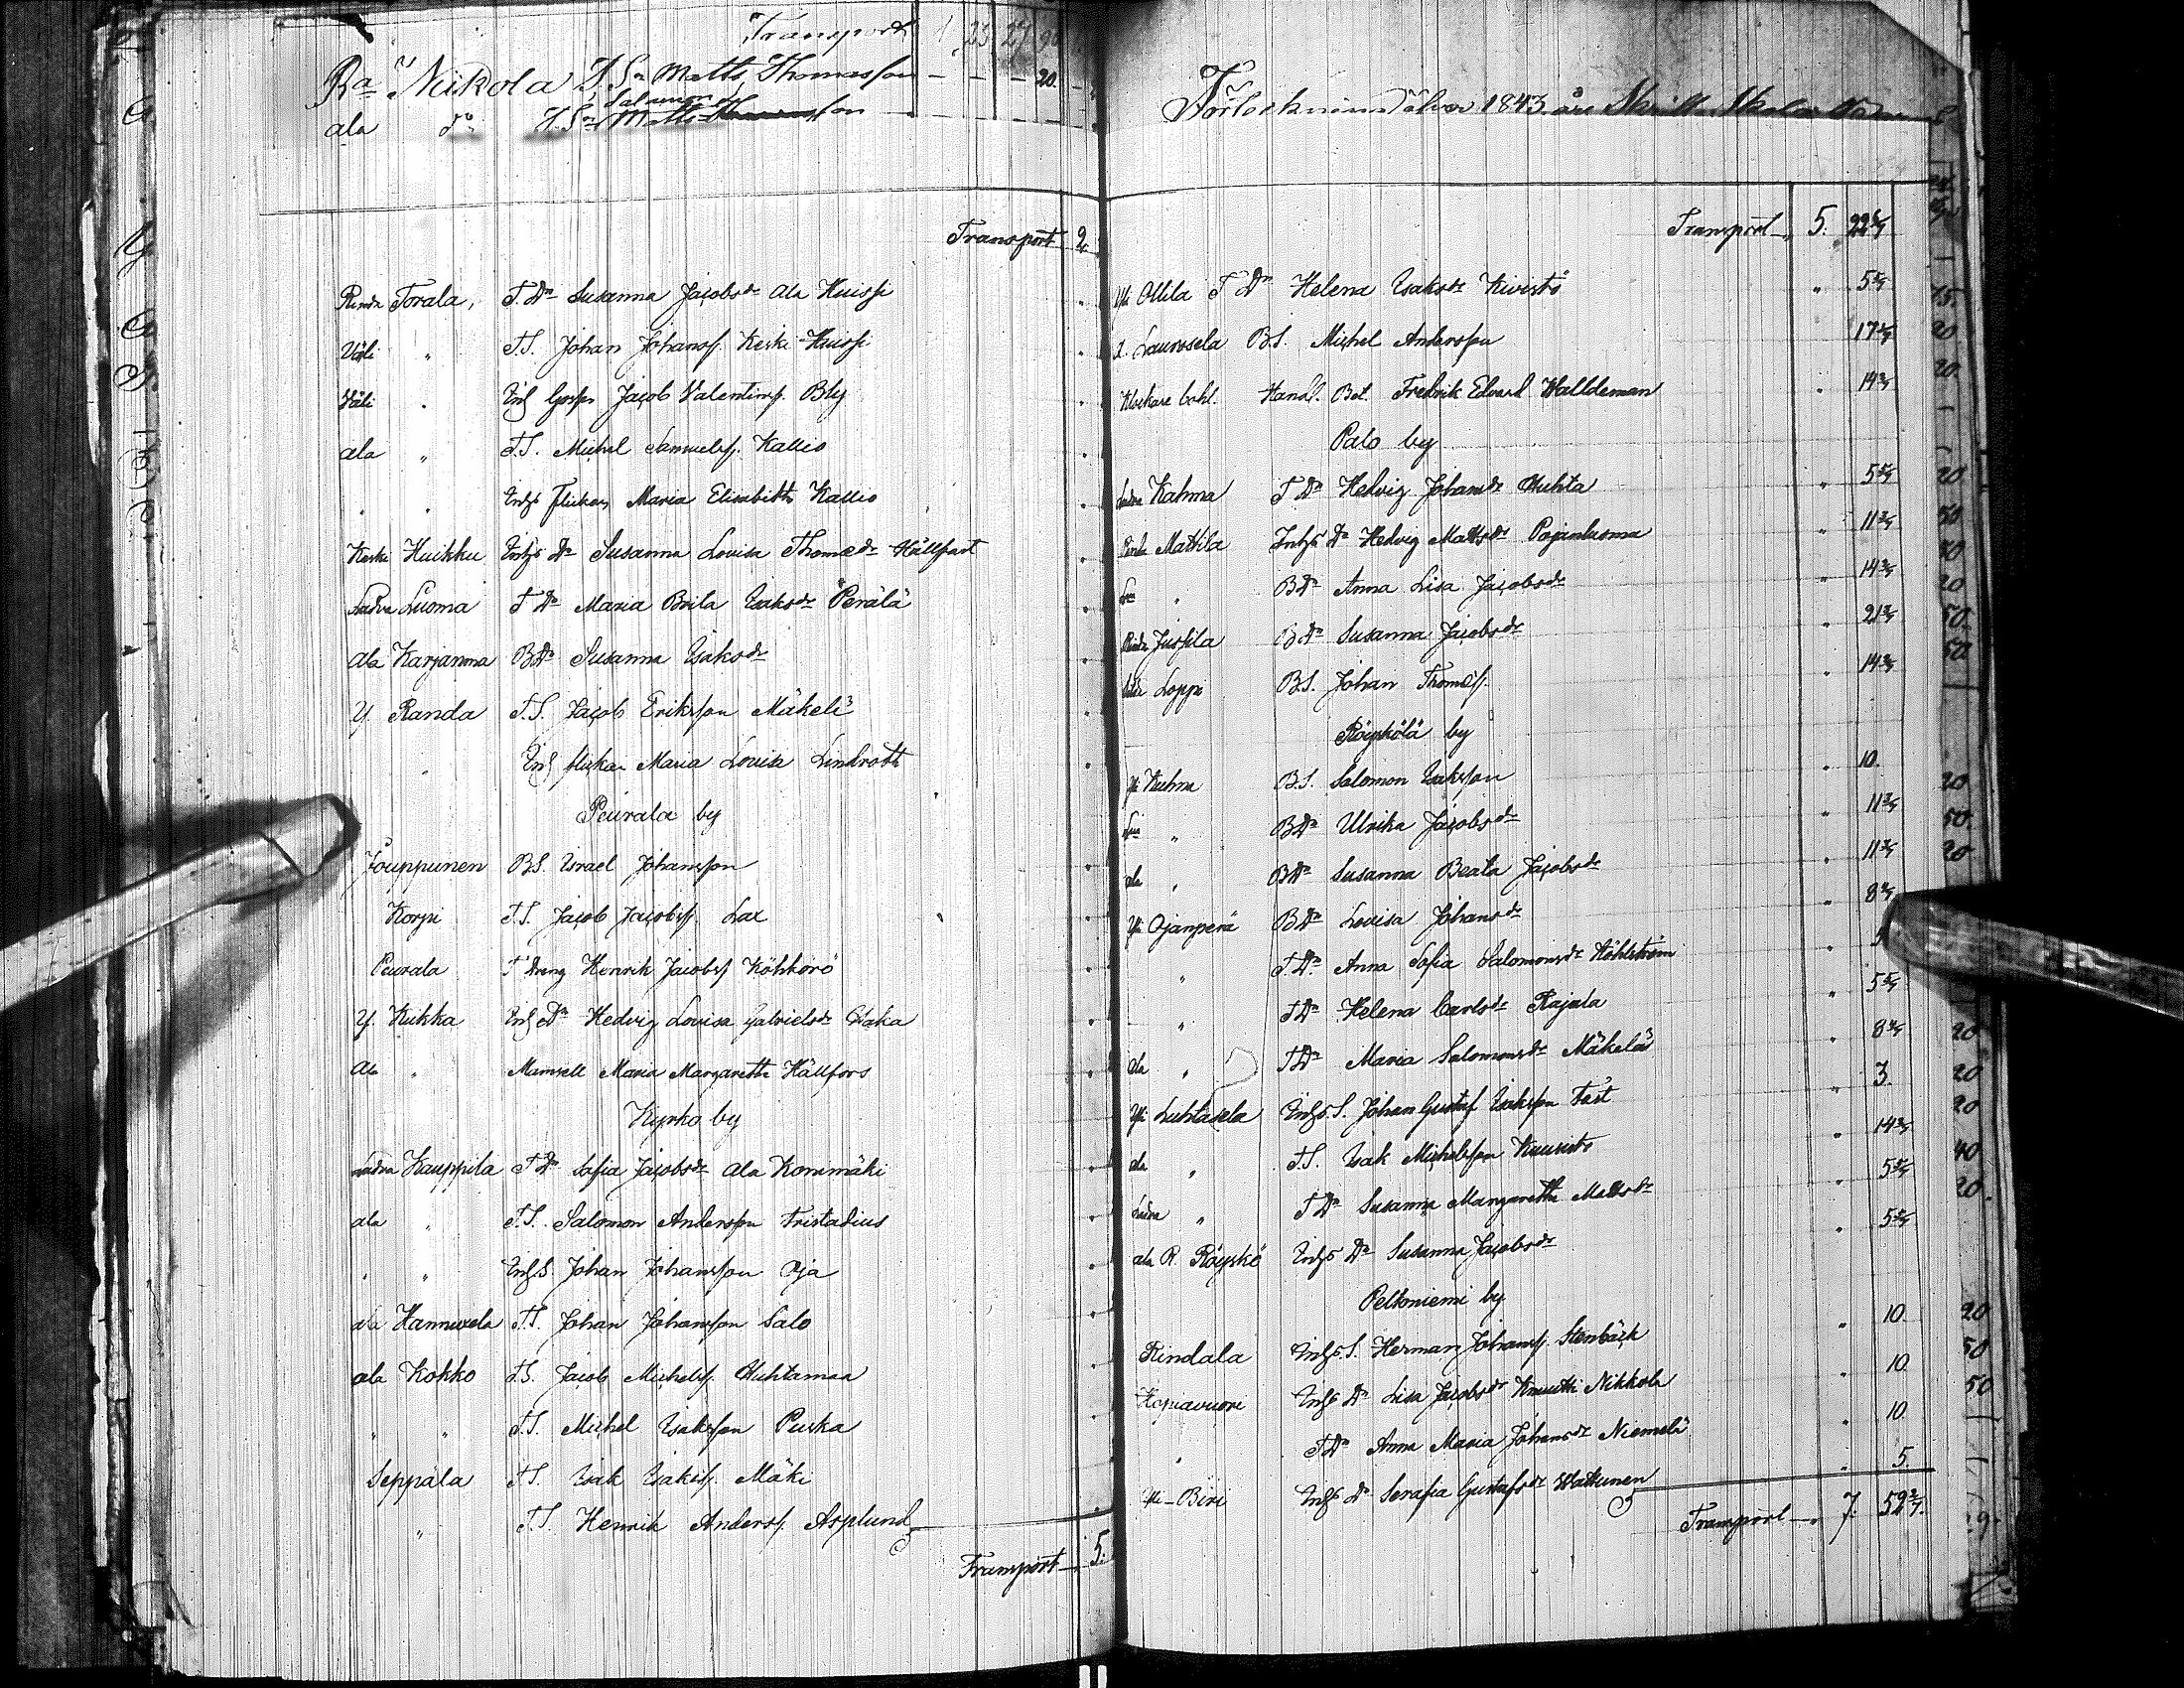 Transport 1 23 27 90
Ra Niikola T. Sn Matts Thomasson 20.
ala do Salamon T. Sn Matts son
Transport 2
Rinda Torala, T. Dn Susanna Jacobsdr Ala Huissi
Väli " T.S. Johan Johanss. Keski-Huissi
Väli " Jacob Valentinss. Bly
ala " T.S. Michel Samuelss. Kallio
" " Inhs Flickan Maria Elisabeth Kallio
Keski Huikku Inhs Dn Susanna Lovisa Thomædr Hällfast
Ladva Luoma T Dn Maria Brita Isaksdr Perälä
Ala Karjanma B.Dn Susanna Isaksdr
Y. Randa T.S. Jacob Eriksson Mäkelä
" Inh flickan Maria Lovisa Lindroth
Peurala by
Jouppunen B.S. Israel Johansson
Korpi T.S. Jacob Jacobss. Lax
Peurala T dreng Henrik Jacobss Köhkörö
Y. Kuhka Inh Dn Hedvig Lovisa Gabrielsdr
Ala " Mamsell Maria Margaretha Hällfors
Kyrko by
Ladva Kauppila T Dn Sofia Jacobsdr Ala Konimäki
ala " T.S. Salomon Andersson Fristadius
" " Inh S. Johan Johansson Oja
ala Hannuxela T.S. Johan Johansson Salo
ala Kokko T.S. Jacob Michelss. Huhtamaa
" " T.S. Michel Isaksson Puska
Seppälä T.S. Isak Isakss. Mäki
" T.S. Henrik Anderss. Asplund
Transport 5.
1843 års
Transport 5. 22 6/7
Yli Ollila T Dn Helena Isaksdr Kivistö " 5 5/7
A. Laurosela B.S. Michel Andersson 17 1/7
Klockare bohl. Handl. Bet. Fredrik Edvard Walldeman " 14 2/7
Palo by
Ladva Kahma T Dn Hedvig Johansdr Huhta " 5 5/7
Rinda Mattila Inhs Dn Hedvig Mattsdr Pajanluoma " 11 3/7
" B Dn Anna Lisa Jacobsdr " 14 2/7
Rinda Jussila B Dn Susanna Jacobsdr " 21 3/7
Loppi B.S. Johan Thomæss. " 14 2/7
Röyskölä by
Yli Kuhna B.S. Salomon Isaksson " 10.
" B Dn Ulrika Jacobsdr " 11 3/7
ala " B Dn Susanna Beata Jacobsdr " 11 3/7
Yli Ojanperä B Dn Lovisa Johansdr " 8 4/7
" T.Dn Anna Sofia Salomonsdr " 5
" T Dn Helena Carlsdr Rajala " 5 5/7
ala " T Dn Maria Salomonsdr Mäkelä " 8 4/7
Yli Luhtasela Inhs. S. Johan Gustaf Isaksson Fast " 3.
ala " T.S. Isak Michelsson Kuusisto " 14 2/7
Ladva " T Dn Susanna Margaretha Mattsdr " 5 5/7
ala R. Röyskö Inhs Dn Susanna Jacobsdr " 5 5/7
Peltoniemi by
Rindala Inhs. S. Herman Johanss. Stenbäck " 10.
Kopiavuori Inhs Dn Lisa Jacobsdr Knuutti Nikkola " 10.
" T Dn Anna Maria Johansdr Niemelä " 10.
Yli-Biri Inhs Dn Serafia Gustafsdr Wattunen " 5.
Transport 7. 52 2/7.